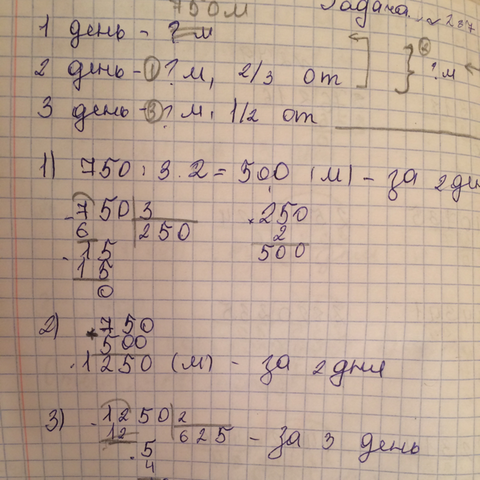 750м
Задача. № 237
1 день - ? м
2 день - ① ? м, 2/3 от ② ? м
3 день - ③ ? м, 1/2 от
1) 750 : 3 · 2 = 500 (м) - за 2 дн
750 3 250
6 250 2
15 500
15
0
2) 750
500
1250 (м) - за 2 дня
3) 1250 2
12 625 - за 3 день
5
4